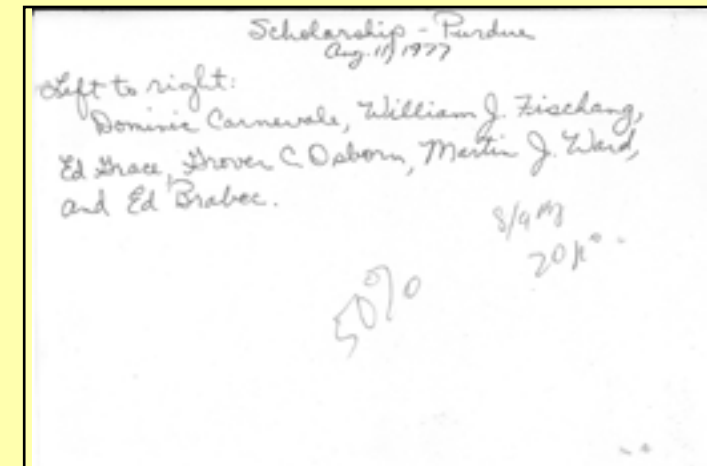 Scholarship - Purdue
Aug. 11, 1977
Left to right:
Dominic Carnevale, William J. Fischang,
Ed Grace, Grover C. Osborn, Martin J. Ward,
and Ed Brabec.
50%